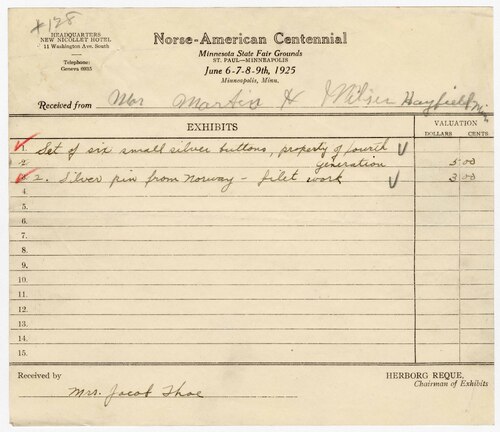 #128
HEADQUARTERS
NEW NICOLLET HOTEL
11 Washington Ave. South
Telephone:
Geneva 6935
Norse-American Centennial
Minnesota State Fair Grounds
ST. PAUL—MINNEAPOLIS
June 6-7-8-9th, 1925
Minneapolis, Minn.
Received from Mrs Martin H Hayfield Minn
EXHIBITS
VALUATION
DOLLARS CENTS
1. Set of six small silver buttons, property of fourth
2. Generation 5 00
3. 2. Silver pin from Norway - filet work 3 00
4.
5.
6.
7.
8.
9.
10.
11.
12.
13.
14.
15.
Received by
Mrs. Jacob Thoe
HERBORG REQUE,
Chairman of Exhibits